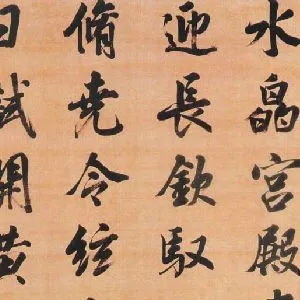 水晶宮殿
迎長欽馭
脩堯令絃
日試開黃